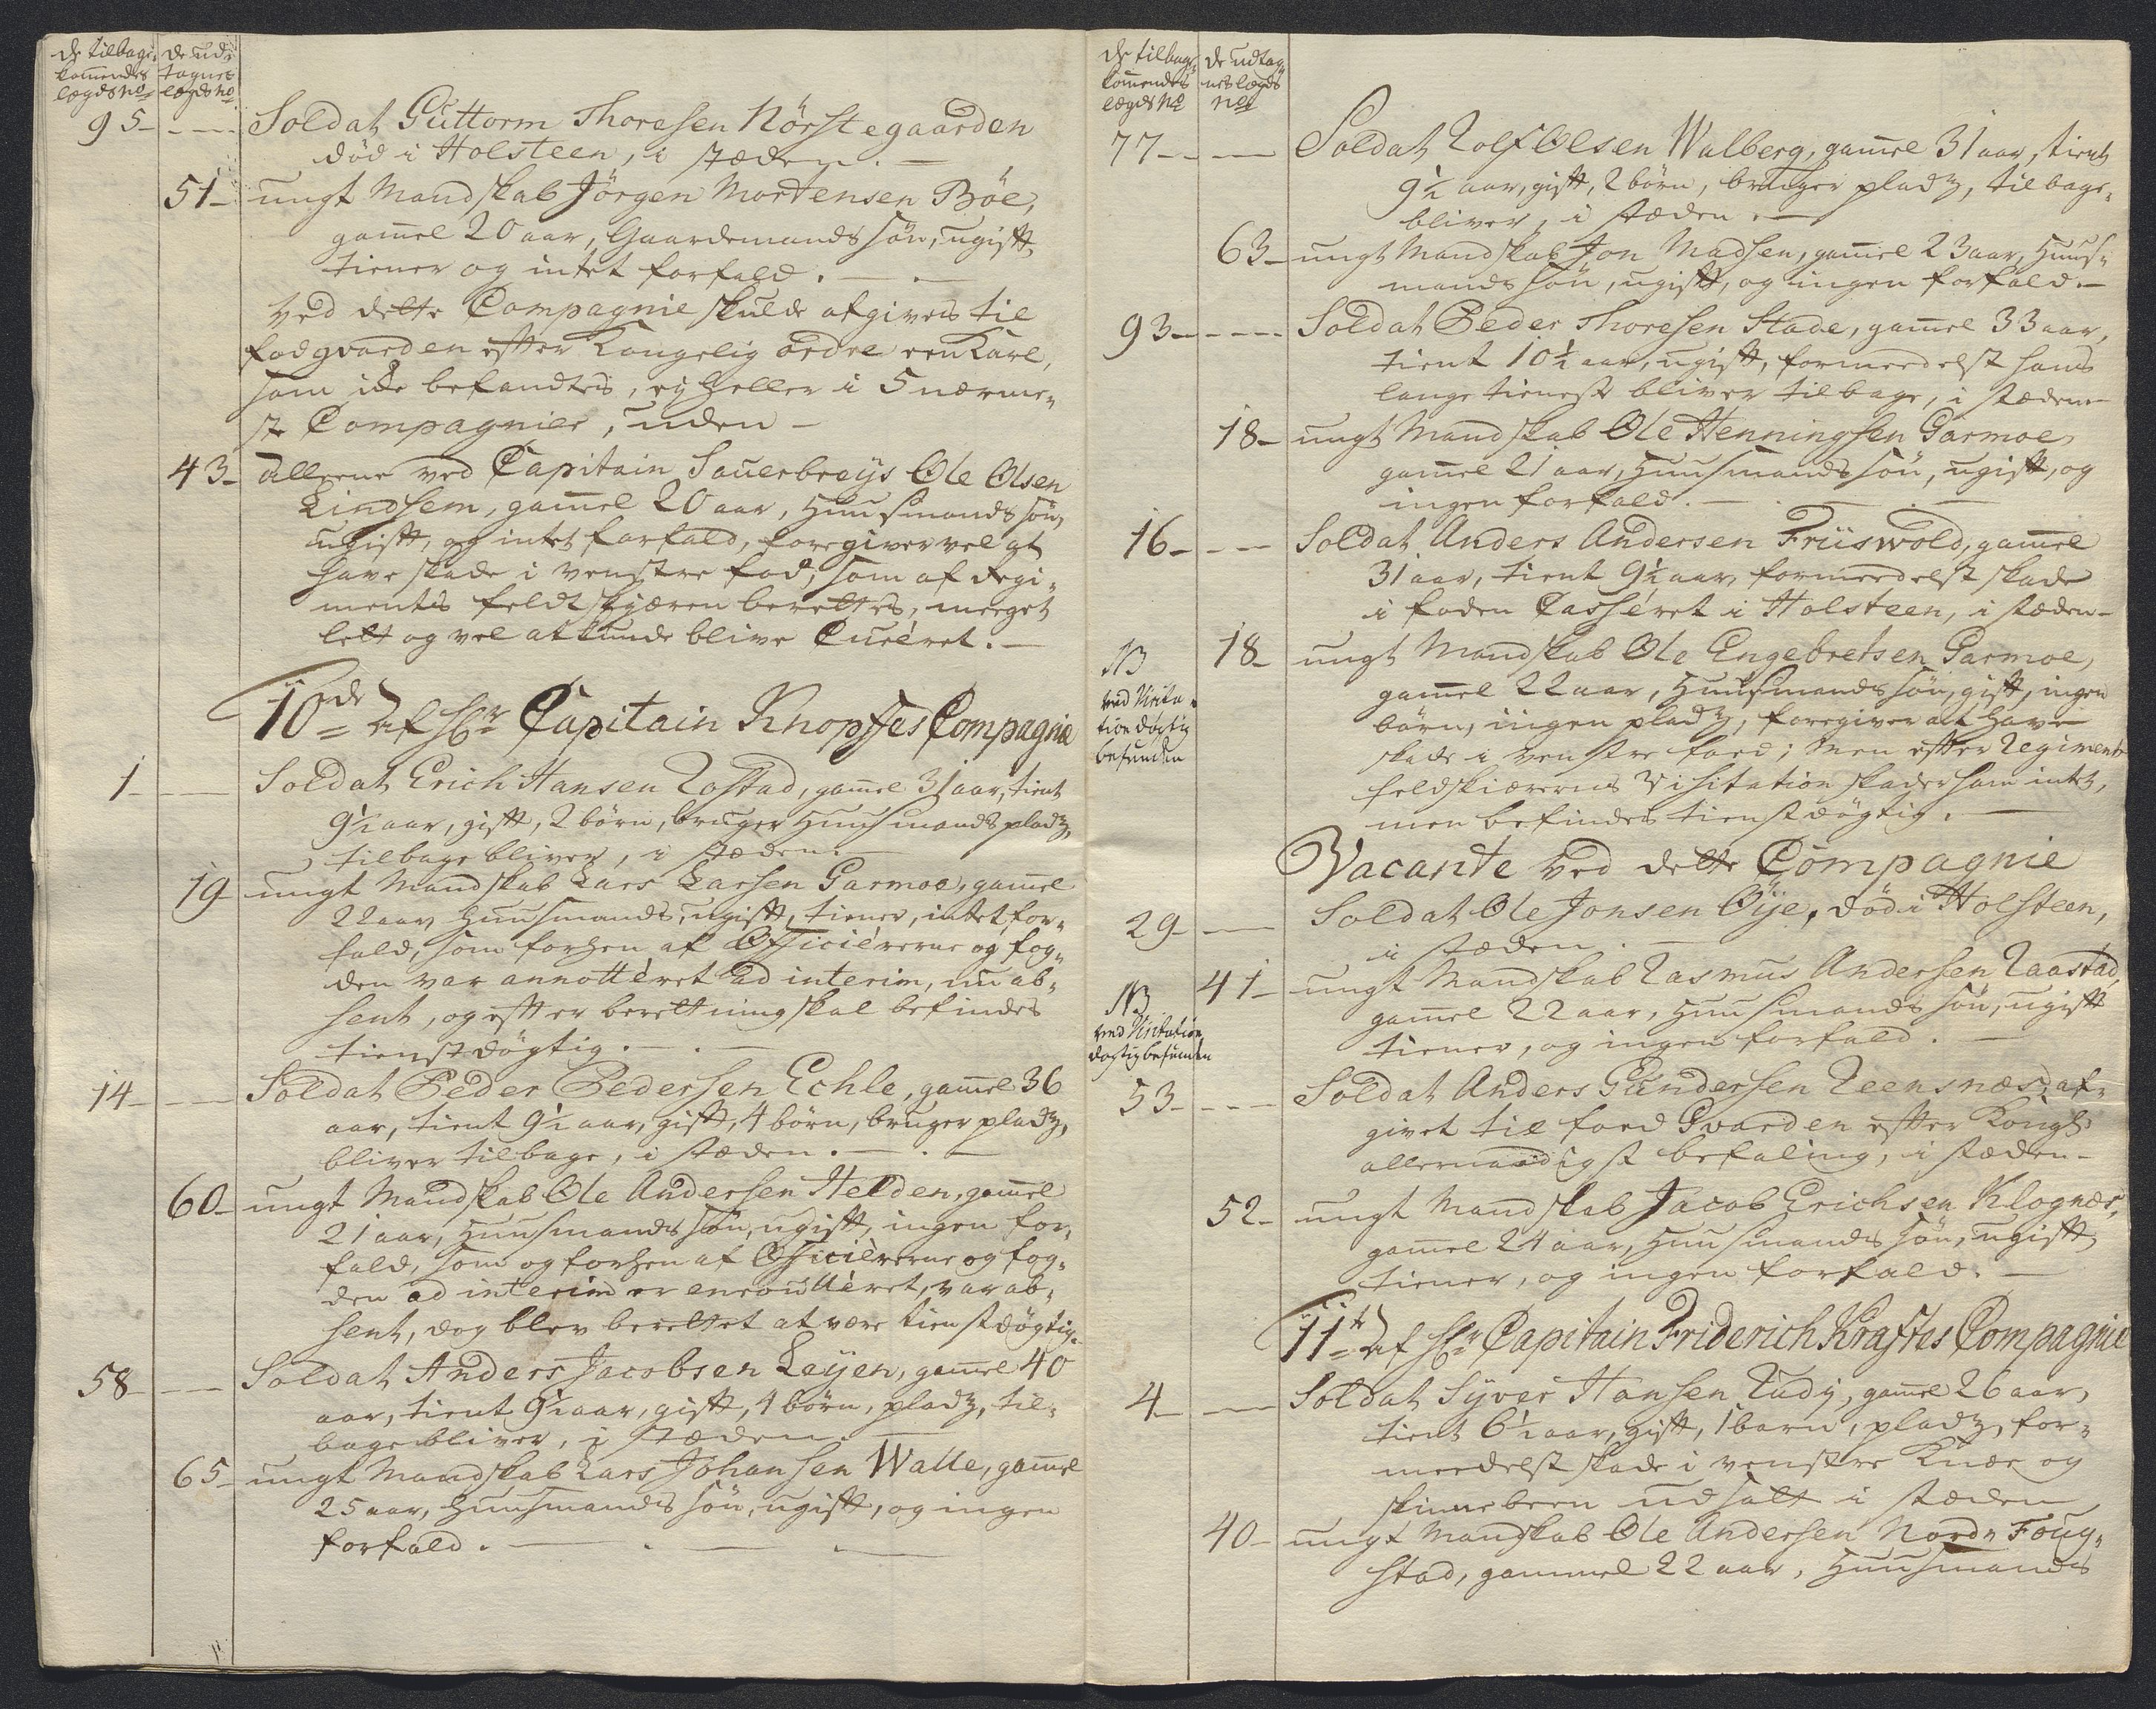 de tilbage-
kommendes
lægds No
de ud-
tagnes
lægds No
95 - Soldat Guttorm Thoresen Nörstegaarden
död i Holsteen, i stæden. -
51 - ungt Mandskab Jörgen Mortensen Böe,
gam̄el 20 aar, Gaardemands sön, ugift,
tiener og intet forfald. -
Ved dette Compagnie skulde afgives til
fodgvarden efter Kongelig ordre een Karl,
som icke befandtes, ej heller i 5 nærme-
ste Compagnier, uden -
43 - alleene ved Capitain Sauerbreys Ole Olsen
Lindsem, gam̄el 20 aar, Huusmands sön,
ugift, og intet forfald, foregiver vel at
have skade i venstre fod, som af Regi-
mentes feldtskjæren berettes, meeget
lett og vel at kunde blive Cureret. -
10de Af Hr Capitain Knopffes Compagnie
1 - Soldat Erich Hansen Lostad, gam̄el 31 aar, tient
9½ aar, gift, 2 börn, bruger Huusmands pladz,
tilbage bliver, i stæden.
19 ungt Mandskab Lars Larsen Garmoe, gam̄el
22 aar Huusmands, ugift, tiener, intet for-
fald, som forhen af Officiererne og fog-
den var annotteret ad interim, nu ab-
sent, og efter beretning skal befindes
tienstdögtig. -
14 - Soldat Peder Pedersen Echle, gam̄el 36
aar, tient 9½ aar, gift, 4 börn, bruger pladz,
bliver tilbage, i stæden. -
60 - ungt Mandskab Ole Andersen Helden, gam̄el
21 aar, Huusmands sön, ugift, ingen for-
fald, som og forhen af Officiererne og fog-
den ad interim er enroulleret, var ab-
sent, dog blev berettet at være tienstdögtig.
58 - Soldat Anders Jacobsen Leyen, gam̄el 40
aar, tient 9½ aar, gift, 4 börn, pladz, til-
bage bliver, i stæden.
65 - ungt Mandskab Lars Johansen Walle, gam̄el
25 aar, Huusmands sön, ugift, og ingen
forfald. -
de tilbage-
kommendes
lægds No
de udtag-
nes lægds
No
77 - Soldat Rolf Olsen Walberg, gam̄el 31 aar, tient
9½ aar, gift, 2 börn, bruger pladz, tilbage-
bliver, i stæden. -
63 - ungt Mandskab Jon Madsen, gam̄el 23 aar, Huus-
mands sön, ugift, og ingen forfald. -
93 - Soldat Peder Thoresen Stade, gam̄el 33 aar,
tient 10½ aar, ugift, formeedelst hans
lange tieneste bliver tilbage, i stæden -
18 - ungt Mandskab Ole Henningsen Garmoe,
gam̄el 21 aar, Huusmands sön, ugift, og
ingen forfald. -
16 - Soldat Anders Andersen Friiswold, gam̄el
31 aar, tient 9½ aar, formeedelst skade
i foden Casseret i Holsteen, i stæden -
NB
ved Visita-
tion dögtig
befunden
18 - ungt Mandskab Ole Engebretsen Garmoe,
gam̄el 22 aar, Huusmands sön, gift, ingen
börn, iingen pladz, foregiver at have
skade i venstre foed; men efter Regiments
feldskiærerens Visitation skader ham intet,
men befindes tienstdögtig. -
Vacante ved dette Compagnie
29 - Soldat Ole Jonsen Öije, död i Holsteen,
i stæden. -
NB
ved Visitation
dögtig befunden
41 - ungt Mandskab Rasmus Andersen Raastad,
gam̄el 22 aar, Huusmands sön, ugift
tiener, og ingen forfald. -
53 - Soldat Anders Gundersen Reensnæs, af-
givet til foed Gvarden efter Kongl:
allernaadigst befaling, i stæden -
52 - ungt Mandskab Jacob Erichsen Klognæs,
gam̄el 24 aar, Huusmands sön, ugift,
tiener, og ingen forfald. -
11te Af Hr Capitain Friderich Kraftes Compagnie
4 - Soldat Syver Hansen Rudij, gam̄el 26 aar,
tient 6½ aar, gift, 1 barn, pladz, for-
meedelst skade i venstre Knæe og
skinnebeen udsatt i stæden
40 - ungt Mandskab Ole Andersen Nordr Foug-
stad, gammel 22 aar, Huusmands